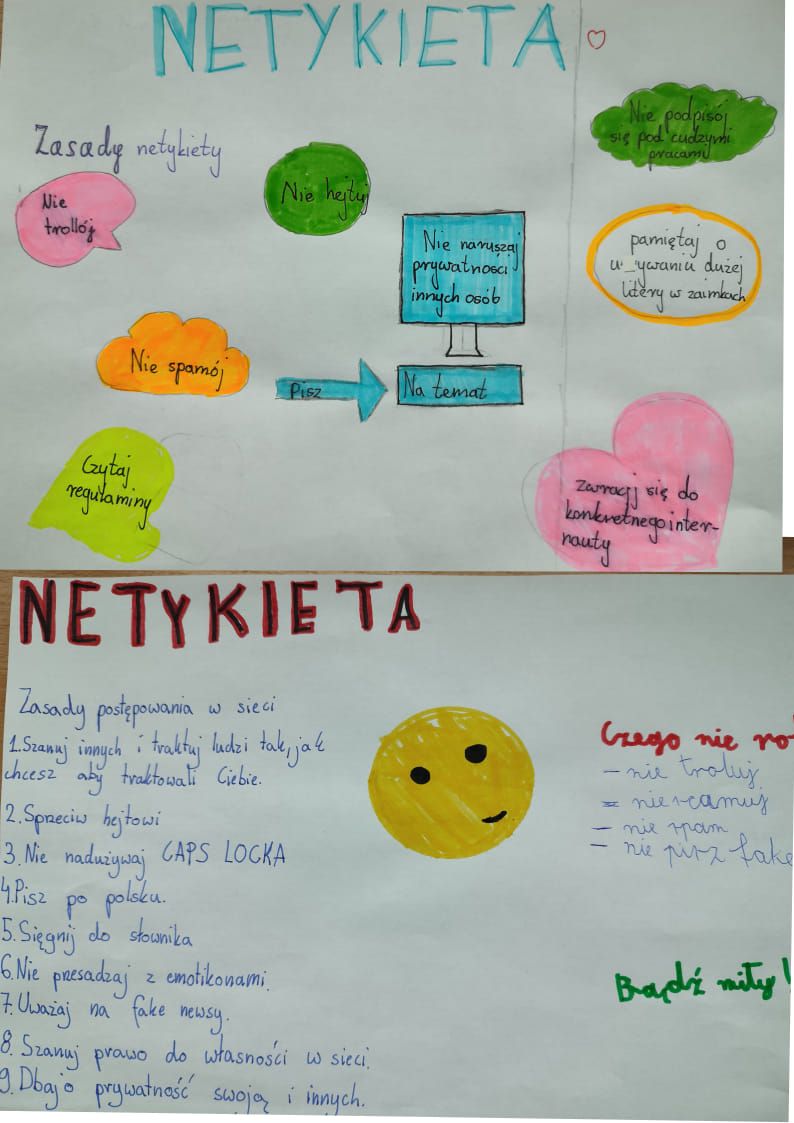 NETYKIETA
Zasady netykiety
Nie
trollój
Nie hejtuj
Nie podpisój
się pod cudzymi
pracami
Nie naruszaj
prywatności
innych osób
pamiętaj o
u_ywaniu dużej
litery w zaimkach
Nie spamój
Pisz
Na temat
Czytaj
regulaminy
zwracj się do
konkretnego inter-
nauty
NETYKIETA
Zasady postępowania w sieci
1. Szanuj innych i traktuj ludzi tak, jak
chcesz aby traktowali Ciebie.
2. Sprzeciw hejtowi
3. Nie nadużywaj CAPS LOCKA
4. Pisz po polsku.
5. Sięgnij do słownika
6. Nie presadzaj z emotikonami.
7. Uważaj na fake newsy.
8. Szanuj prawo do własności w sieci.
9. Dbaj o prywatność swoją i innych.
Czego nie ro
- nie troluj
- nie scamuj
- nie spam
- nie pisz fake
Bądź miły!